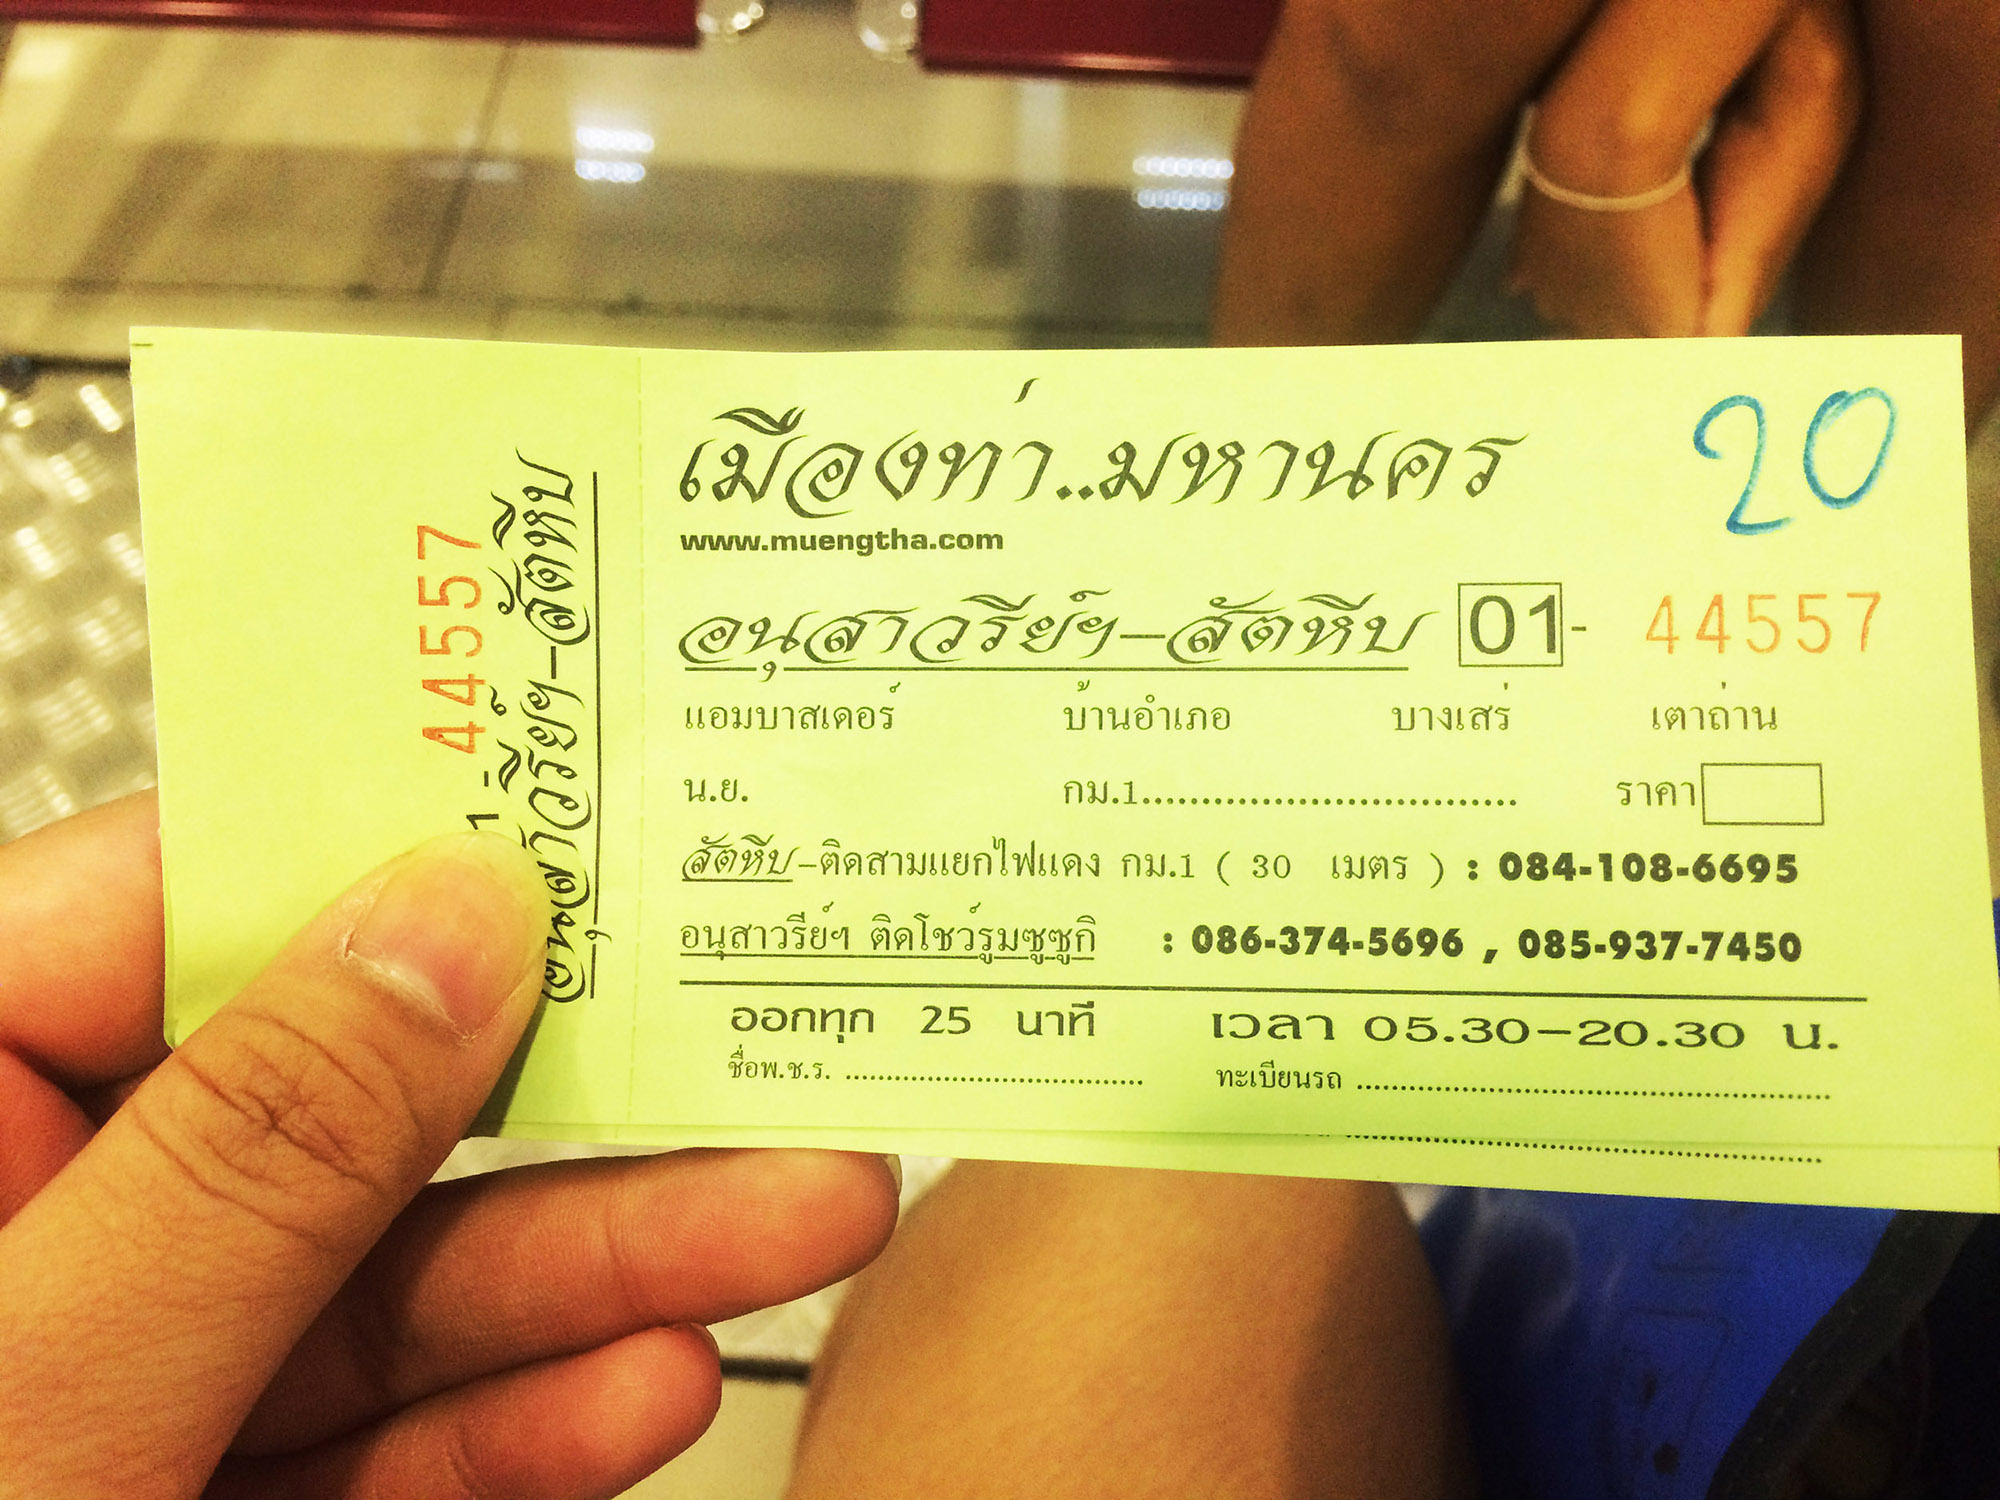 เมืองท่า..มหานคร
20
www.muengtha.com
อนุสาวรีย์ฯ-สัตหีบ 01- 44557
แอมบาสเดอร์ บ้านอำเภอ บางเสร่ เตาถ่าน
น.ย. กม.1............................... ราคา
สัตหีบ-ติดสามแยกไฟแดง กม.1 ( 30 เมตร ) : 084-108-6695
อนุสาวรีย์ฯ ติดโชว์รูมซูซูกิ : 086-374-5696 , 085-937-7450
ออกทุก 25 นาที เวลา 05.30-20.30 น.
ชื่อพ.ช.ร. .................................... ทะเบียนรถ ..........................................................
1- 44557
อนุสาวรีย์ฯ-สัตหีบ